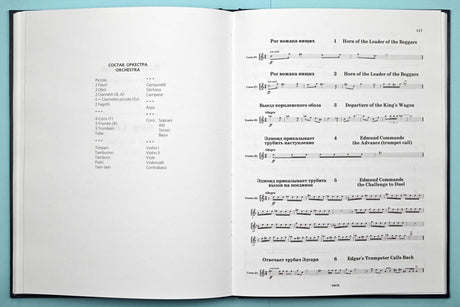 СОСТАВ ОРКЕСТРА
ORCHESTRA
Piccolo
2 Flauti
2 Oboi
2 Clarinetti (B, A)
2 Fagotti
* * *
4 Corni (F)
3 Trombe (B)
3 Tromboni
Tuba
* * *
Timpani
Tamburino
Tamburo
Piatti
Tam-tam
* * *
Campanelli
Silofono
Campane
* * *
Arpa
* * *
Coro: Soprani
Alti
Tenori
Bassi
* * *
Violini I
Violini II
Viole
Violoncelli
Contrabassi
117
Рог вожака нищих 1 Horn of the Leader of the Beggars
Рог вожака нищих 2 Horn of the Leader of the Beggars
Выезд королевского обоза 3 Departure of the King's Wagon
Allegro
Эдмонд приказывает трубить наступление 4 Edmund Commands the Advance (trumpet call)
Allegro
Эдмонд приказывает трубить вызов на поединок 5 Edmund Commands the Challenge to Duel
Allegro
Отвечает трубач Эдгара 6 Edgar's Trumpeter Calls Back